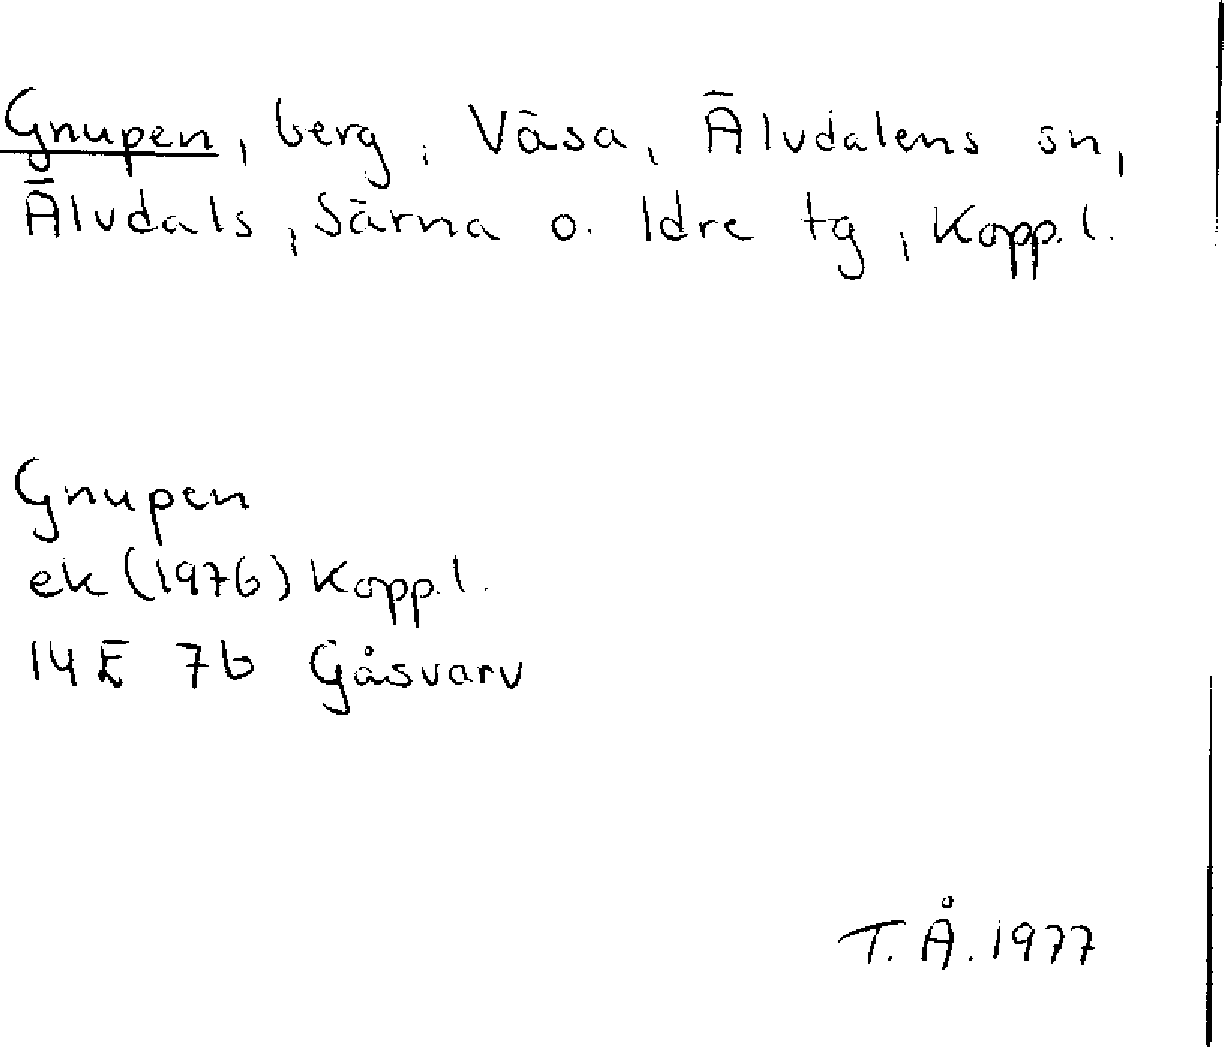 Gnupen, berg, Väsa, Älvdalens sn,
Älvdals, Särna o. Idre tg, Kopp.l.
Gnupen
ek (1976) Kopp.l.
14E 7b Gåsvarv
T.Å. 1977